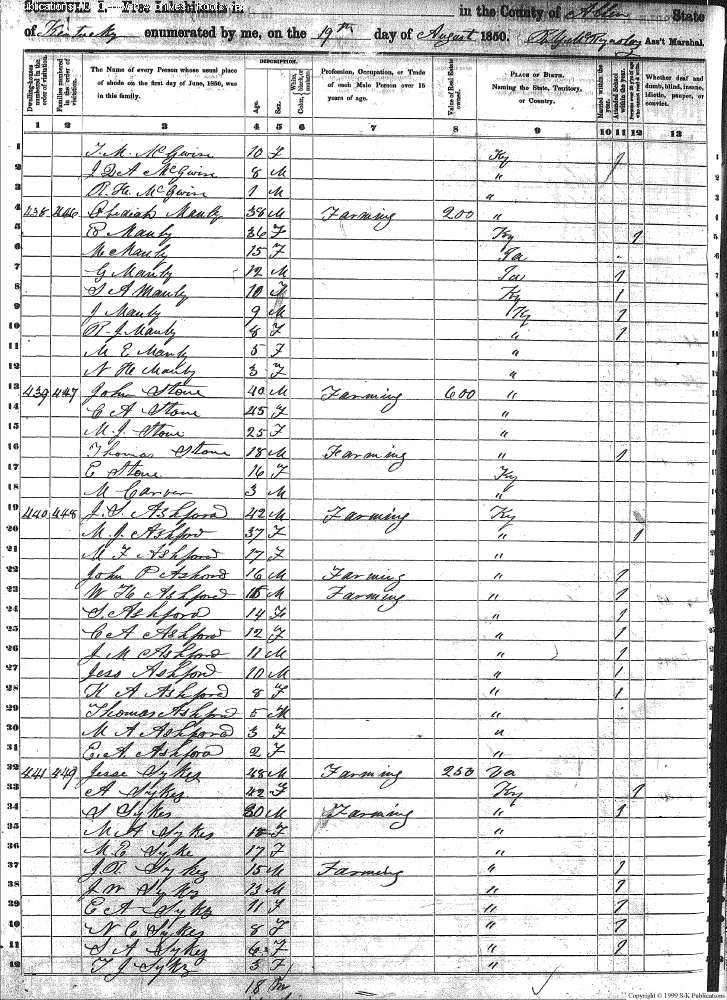 in the County of Allen State
of Kentucky enumerated by me, on the 19th day of August 1850. Ass't Marshal.
DESCRIPTION.
Dwelling-houses numbered in the order of visitation.
Families numbered in the order of visitation.
The Name of every Person whose usual place of abode on the first day of June, 1850, was in this family.
Age.
Sex.
White, Color, black, or mulatto.
Profession, Occupation, or Trade of each Male Person over 15 years of age.
Value of Real Estate owned.
PLACE OF BIRTH. Naming the State, Territory, or Country.
Married within the year.
Attended School within the year.
Whether deaf and dumb, blind, insane, idiotic, pauper, or convict.
1 2 3 4 5 6 7 8 9 10 11 12 13
1 T. M. McGwire 10 F Ky 1
2 J D A McGwire 8 M "
3 R. H. McGwire 1 M "
4 438 446 Obediah Manly 38 M Farming 200 "
5 E Manly 36 F Ky 1
6 M Manly 15 F
7 G Manly 12 M 1
8 S A Manly 10 Ky 1
9 J Manly 9 M Ky 1
10 R. J. Manly 8 F " 1
11 M E Manly 5 F "
12 N H Manly 3 F "
13 439 447 John Stone 40 M Farming 600 "
14 C A Stone 45 F "
15 M. J. Stone 25 F "
16 Thomas Stone 18 M Farming " 1
17 E Stone 16 F Ky
18 M Carver 3 M "
19 440 448 J. S. Ashford 42 M Farming Ky
20 M. J. Ashford 37 F " 1
21 M F Ashford 17 F "
22 John P Ashord 16 M Farming " 1
23 W H Ashford 15 M Farming " 1
24 S. Ashford 14 F " 1
25 C A Ashford 12 F " 1
26 J. M Ashford 11 M " 1
27 Jess Ashford 10 M " 1
28 K A Ashford 8 F " 1
29 Thomas Ashford 5 M "
30 M A Ashford 3 F "
31 E. A. Ashford 2 F "
32 441 449 Jesse Sykes 48 M Farming 250 Va
33 A Sykes 42 F Ky 1
34 S Sykes 20 M Farming " 1
35 M A Sykes 18 F "
36 M E Syke 17 F "
37 J. R. Sykes 15 M Farming " 1
38 J W Sykes 13 M " 1
39 E A Sykes 11 F " 1
40 N C Sykes 8 F " 1
41 S A Sykes 6 F " 1
42 T J Sykes 3 F "
18 M
Copyright © 1999 S-K Publications